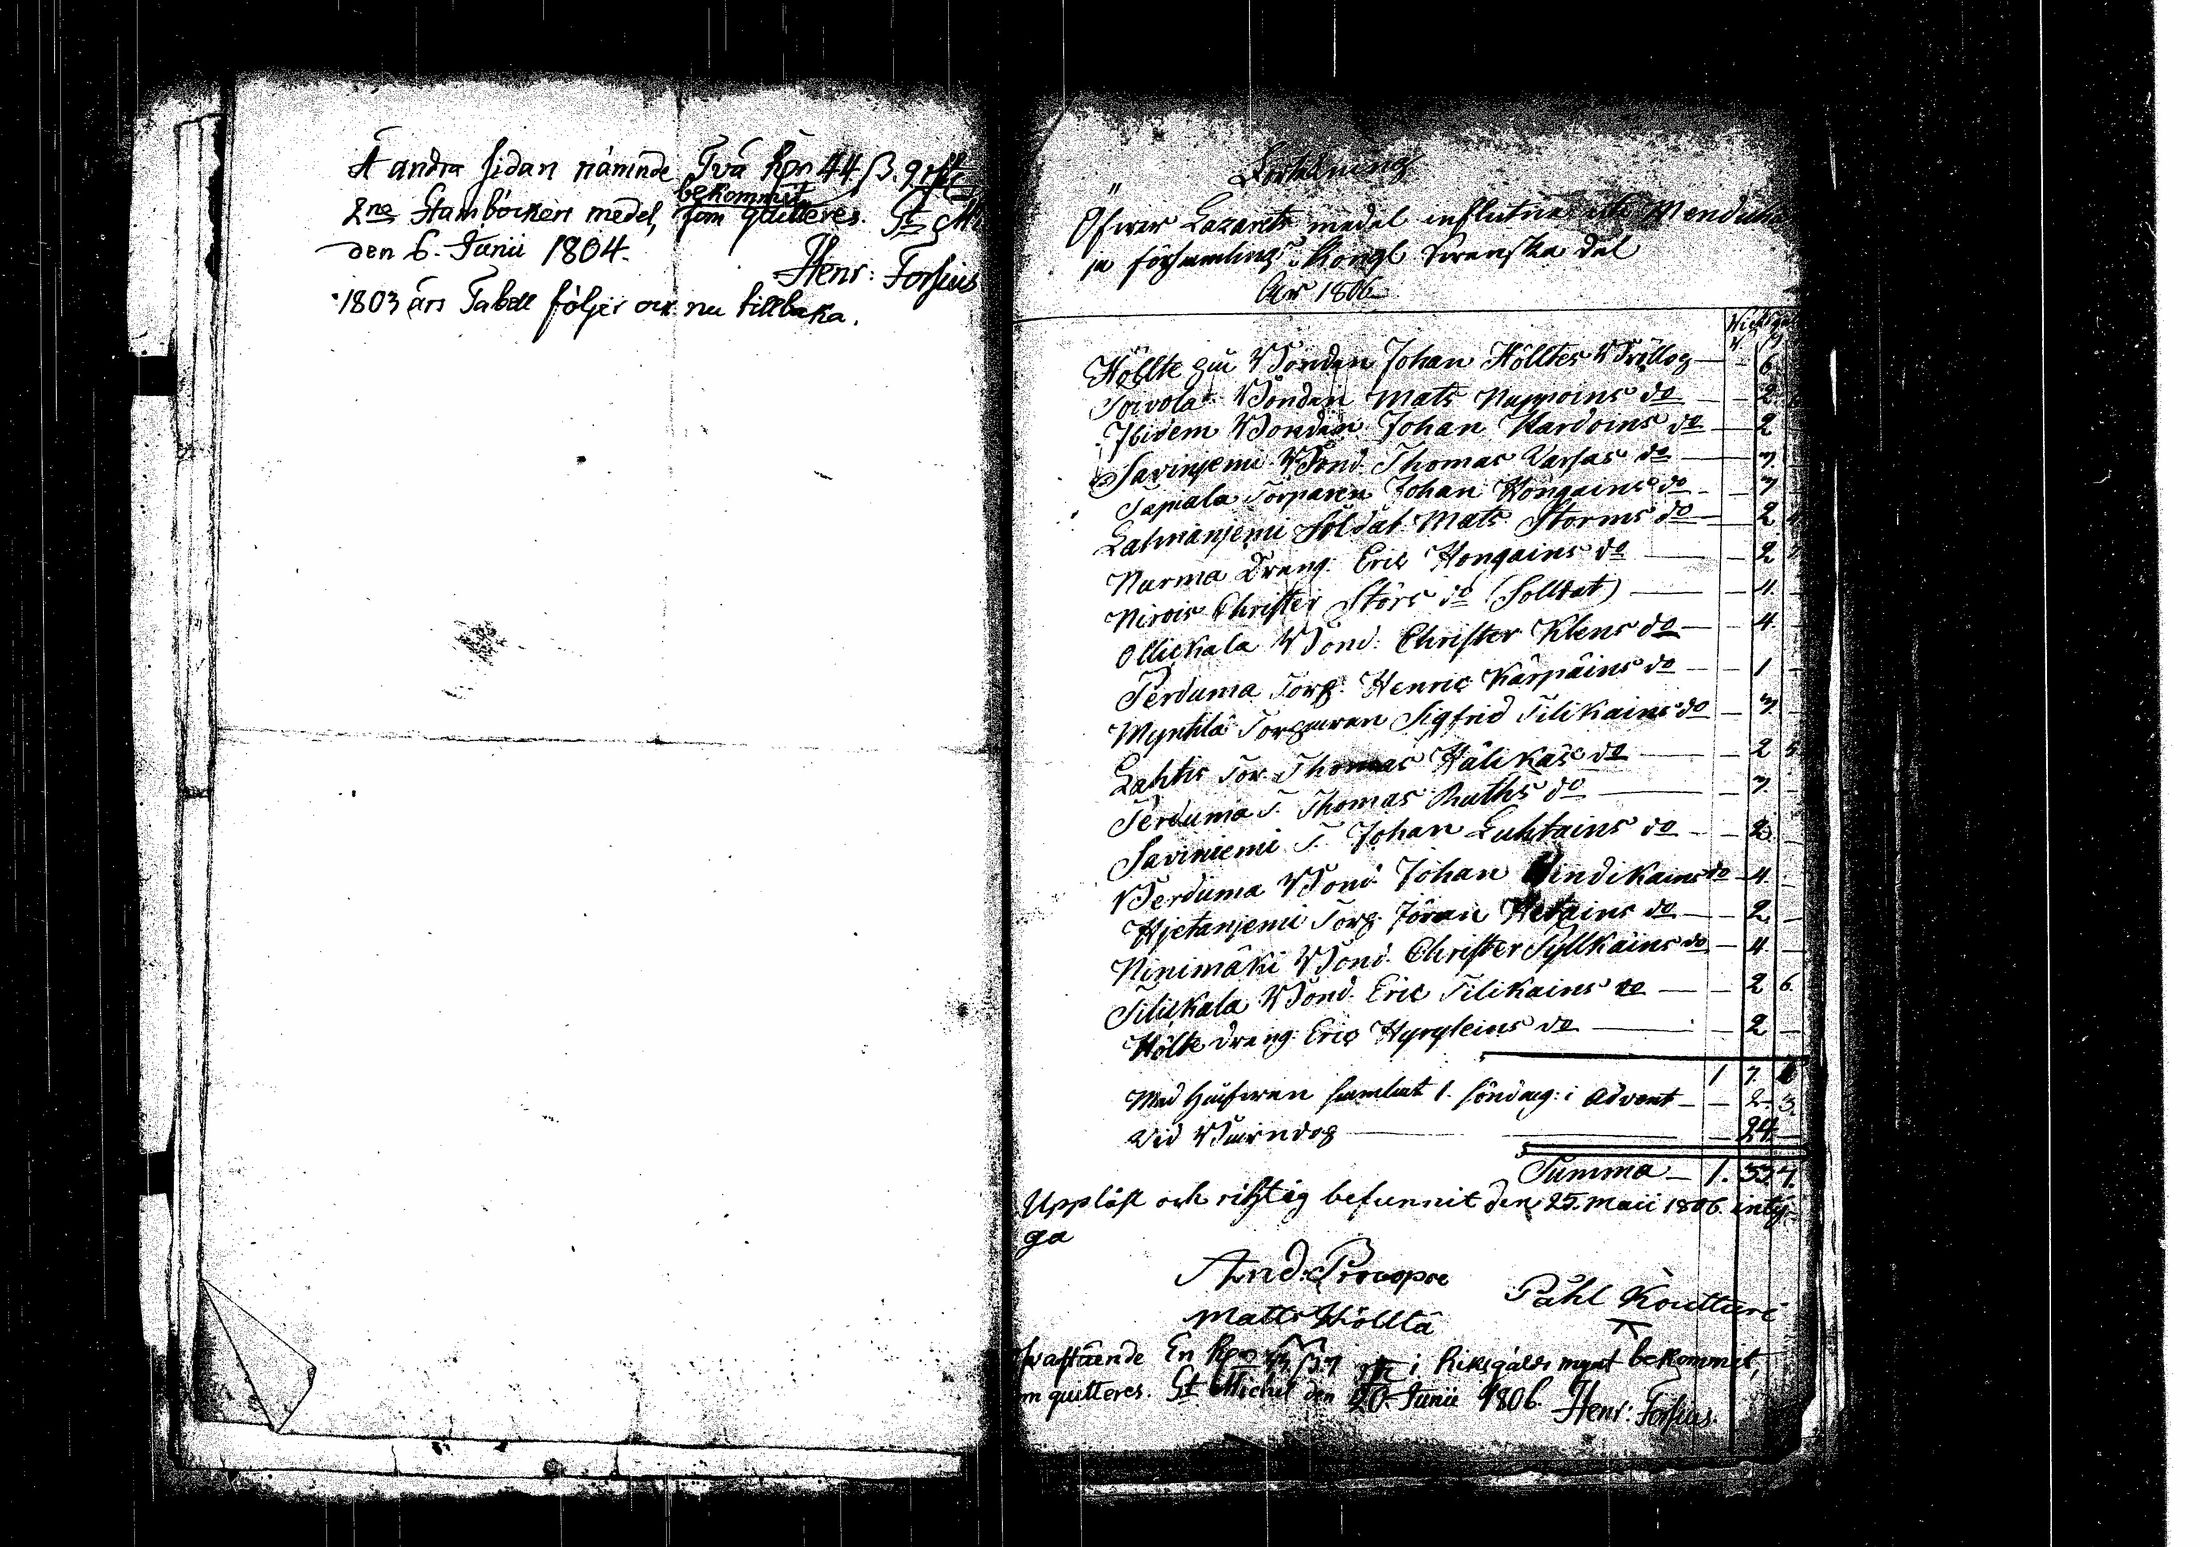 Å andra sidan nämnde Två Rdr 44 ß. 9
bekommit
2ne Stamböcker medel, som quitteres. St M
den 6. Junii 1804.
Henr: Forsius
1803 års Tabell följer ock nu tillbaka.
Förtekning
Öfwer Lazaretts medel influtne uti Menduha
ja församlings Kongl Swenska del
År 1806
Höllte Bonden Johan Hölltes Bröllop — - 6
Toivola Bonden Mats Nappoins do — 2
Ibidem Bonden Johan Kardoins do — 2
Savinjemi Bond. Thomas Varsas do — 3
Tapiala Torparen Johan Hongains do — 3
Lahnanjemi Soldat Mats Storms do — 2
Nurma Dreng Eric Hongains do — 2
Nirois Christer Störs do (Solldat) — 4
Ollickala Bond. Christer Klens do — 4
Perduma Torp. Henric Kärpäins do — 1
Myntilä Torparen Sigfrid Tilikains do — 3
Lahtis Tor. Thomas Hälikäs do — 2
Perduma T. Thomas Ruths do — 3
Saviniemi T. Johan Luhtains do — 2
Perduma Bond. Johan Hindikains do — 4
Hietanjemi Torp. Jöran Hetains do — 2
Ninimäki Bond. Christer Sylkäins do — 4
Tilickala Bond. Eric Tilikains do — 2 6
Hölte dreng Eric Hyryleins do — 2
1 7
Med Håfwen samlat 1. söndag: i Advent — 2 3
Vid Bärndop — 24
Summa — 1. 33
Uppläst och richtig befunnit den 25. Maii 1806. inty-
ga
And: Procopoe
Påhl Koutturi
Matts Hölltä
En Rdr i Riksgälds mynt bekommit,
m quitteres. St Michel den 20. Junii 1806. Henr: Forsius.